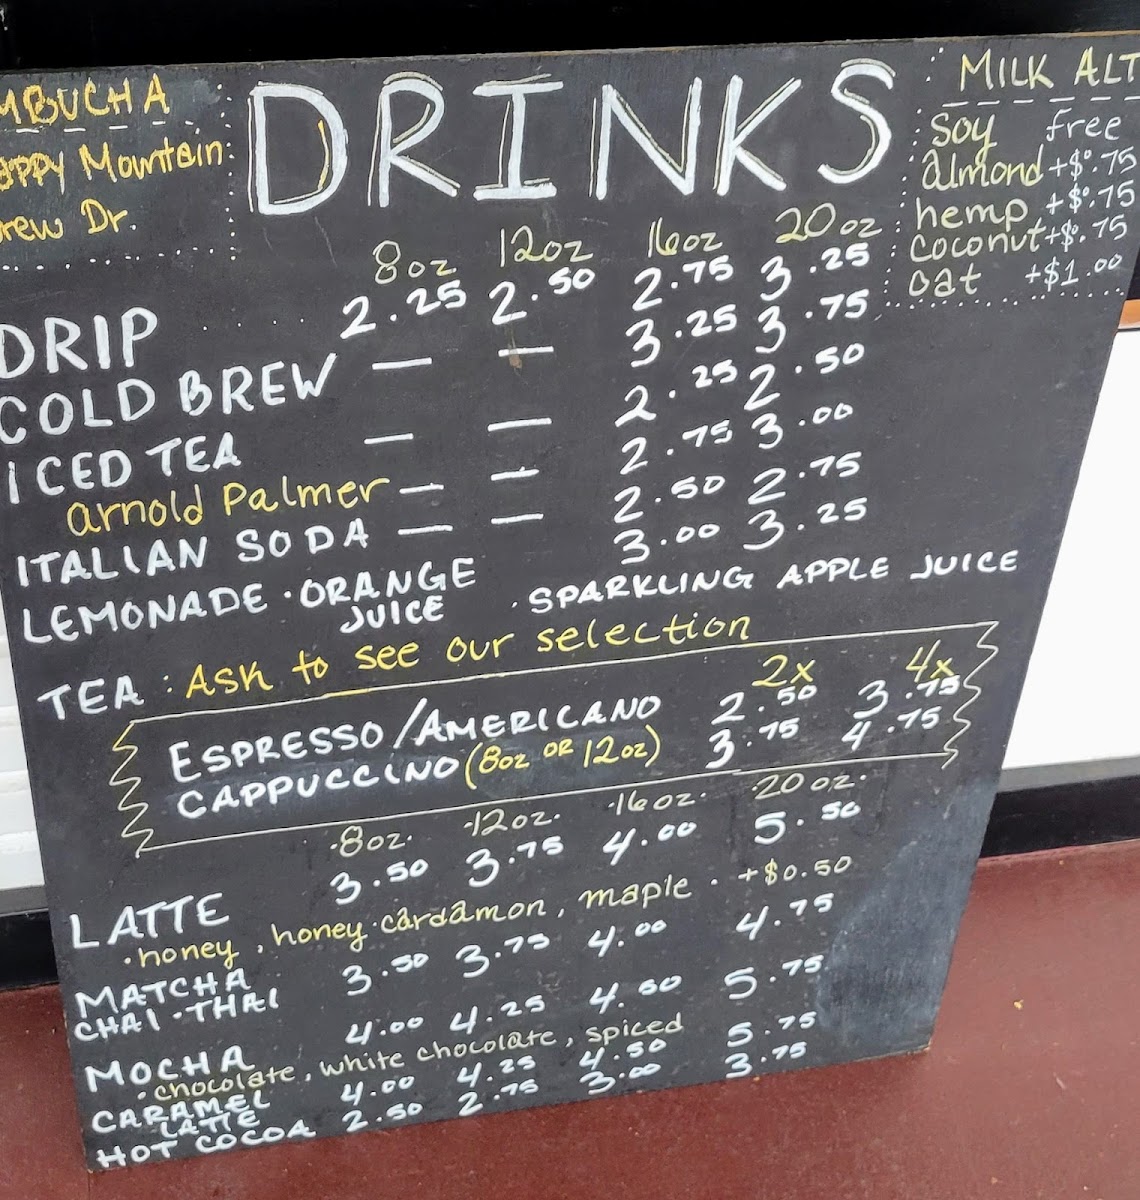 MBUCHA
appy Mountain
rew Dr.
DRINKS
MILK ALT
Soy free
almond +$0.75
hemp +$0.75
coconut +$0.75
oat +$1.00
8oz 12oz 16oz 20oz
DRIP . . . 2.25 2.50 2.75 3.25
COLD BREW — — 3.25 3.75
ICED TEA — — 2.25 2.50
arnold Palmer — — 2.75 3.00
ITALIAN SODA — — 2.50 2.75
LEMONADE · ORANGE JUICE 3.00 3.25
· SPARKLING APPLE JUICE
TEA : ASK to see our selection
2x 4x
ESPRESSO/AMERICANO 2.50 3.75
CAPPUCCINO (8oz OR 12oz) 3.75 4.75
·8oz· ·12oz· ·16oz· ·20oz·
LATTE 3.50 3.75 4.00 5.50
·honey, honey·cardamon, maple · +$0.50
MATCHA
CHAI·THAI 3.50 3.75 4.00 4.75
MOCHA 4.00 4.25 4.50 5.75
·chocolate, white chocolate, spiced
CARAMEL LATTE 4.00 4.25 4.50 5.75
HOT COCOA 2.50 2.75 3.00 3.75